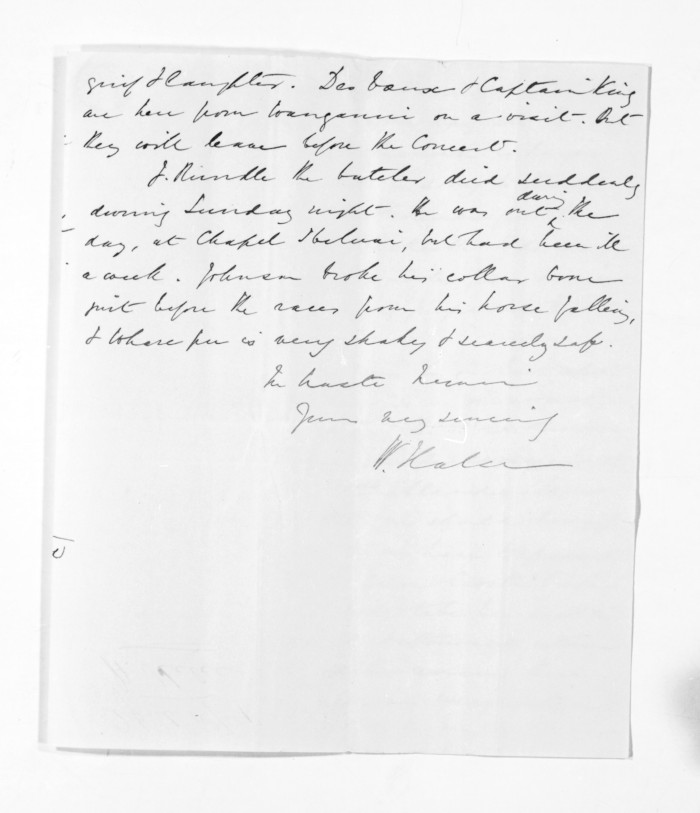 grief & laughter. Des Vaux & Captain King
are here from Wanganui on a visit. But
they will leave before the Concert.
J. Rundle the butcher died suddenly
during Sunday night. He was out during the
day, at Chapel I believe, but had been ill
a week. Johnson broke his collar bone
just before the races from his horse falling,
& is very shaky & scarcely safe.
In haste
Yours very sincerely
W. Halse